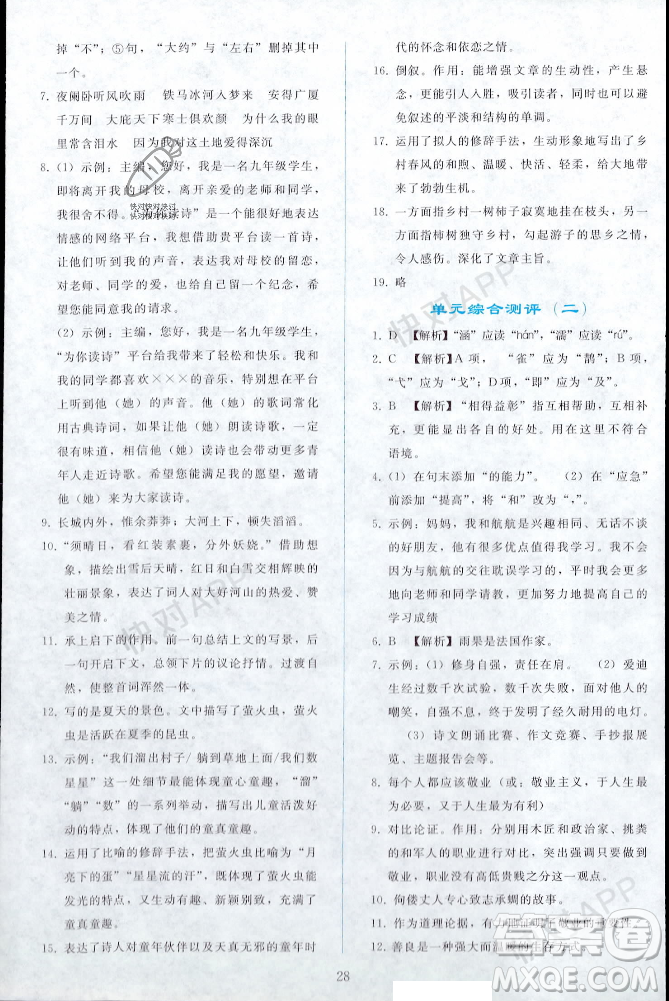 掉“不”；⑤句，“大约”与“左右”删掉其中
一个。
7. 夜阑卧听风吹雨　铁马冰河入梦来　安得广厦
千万间　大庇天下寒士俱欢颜　为什么我的眼
里常含泪水　因为我对这土地爱得深沉
8. (1) 示例：主编，您好，我是一名九年级学生，
即将离开我的母校，离开亲爱的老师和同学，
我很舍不得。“为你读诗”是一个很好地表达
情感的网络平台，我想借助贵平台读一首诗，
让他们听到我的声音，我对母校的留恋，
对老师、同学的爱，也会留作一个纪念，希望您
能同意我的请求。
(2) 示例：主编，您好，我是一名九年级学生，
“为你读诗”平台给我带来了轻松和快乐。今
天，我想向您推荐×××的音乐，特别希望您
能够邀请他（她）来读诗。他（她）的歌词常化
用古典诗词，如果他（她）朗读诗歌，一定很有
意味。而且，相信他（她）一定能带动更多的
青年人走近诗歌。希望您能满足我的愿望，邀请
他（她）来为大家读诗。
9. 长城内外，惟余莽莽；大河上下，顿失滔滔。
10. “须晴日，看红装素裹，分外妖娆。”借助想
象，描绘出雪后天晴，红日和白雪交相辉映的
壮丽景象，表达了词人对大好河山的热爱、赞
美之情。
11. 承上启下的作用，前一句总结上文的写景，后
一句开启下文，总领下片的议论抒情。过渡自
然，使整首词浑然一体。
12. 写的是夏天的景色。文中描写了萤火虫，萤火
虫是活跃在夏季的昆虫。
13. 示例：“我们溜出村子/躺到草地上/我们数
星星”这一处细节最能体现童心童趣，“溜”
“躺”“数”的一系列举动，描写出儿童活泼好
动的特点，体现了他们的童真童趣。
14. 运用了比喻的修辞手法，把萤火虫比喻为“月
亮下的蛋”“星星流的汗”，突出了萤火虫能
发光的特点，生动、新颖别致，充满了
童真童趣。
15. 表达了诗人对童年伙伴以及天真无邪的童年时
代的怀念和依恋之情。
16. 倒叙。作用：能增强文章的生动性，产生悬
念，更能引人入胜，吸引读者，同时也可以避
免叙述的平淡和结构的单调。
17. 运用了拟人的修辞手法，生动形象地写出了乡
村春风的和煦、温暖、快活、轻柔，给大地带
来了勃勃生机。
18. 一方面指乡村一树柿子寂寞地挂在枝头，另一
方面指柿树独守乡村，勾起游子的思乡之情，
令人感伤。深化了文章主旨。
19. 略
单元综合测评（二）
1. D 【解析】“涵”应读“hán”，“濡”应读“rú”。
2. C 【解析】A项，“雀”应为“鹊”；B项，
“弋”应为“戈”；D项，“即”应为“及”。
3. B 【解析】“相得益彰”指互相帮助，互相补
充，更能显出各自的好处。用在这里不符合
语境。
4. (1) 在句末添加“的能力”。　(2) 在“应急”
前添加“提高”，将“和”改为“，”。
5. 示例：妈妈，我和航航是兴趣相同、无话不谈
的好朋友，他有很多优点值得我学习。而且，
我与航航的交往不会耽误学习，平时我可以多
向老师和同学请教，我会更加努力，争取提高
学习成绩
6. B 【解析】雨果是法国作家。
7. 示例：(1) 修身自强，责任在肩。　(2) 爱迪
生经过数千次试验，无数次失败，不理会他人的
嘲笑，自强不息，最终发明了经久耐用的电灯。
(3) 诗文朗诵比赛、作文竞赛、手抄报展
览、主题报告会等。
8. 每个人都应该敬业（或：敬业主义，于人生最
为必要，又于人生最为有利）
9. 对比论证。作用：分别用木匠和政治家、挑粪
的和军人的职业进行对比，突出强调了职业没
有高低贵贱之分这一观点。
10. 佝偻丈人专心致志承蜩的故事。
11. 作为道理论据，有力地证明了敬业的重要性。
12. 善良是一种强大而温暖的生存方式。
28
快对APP